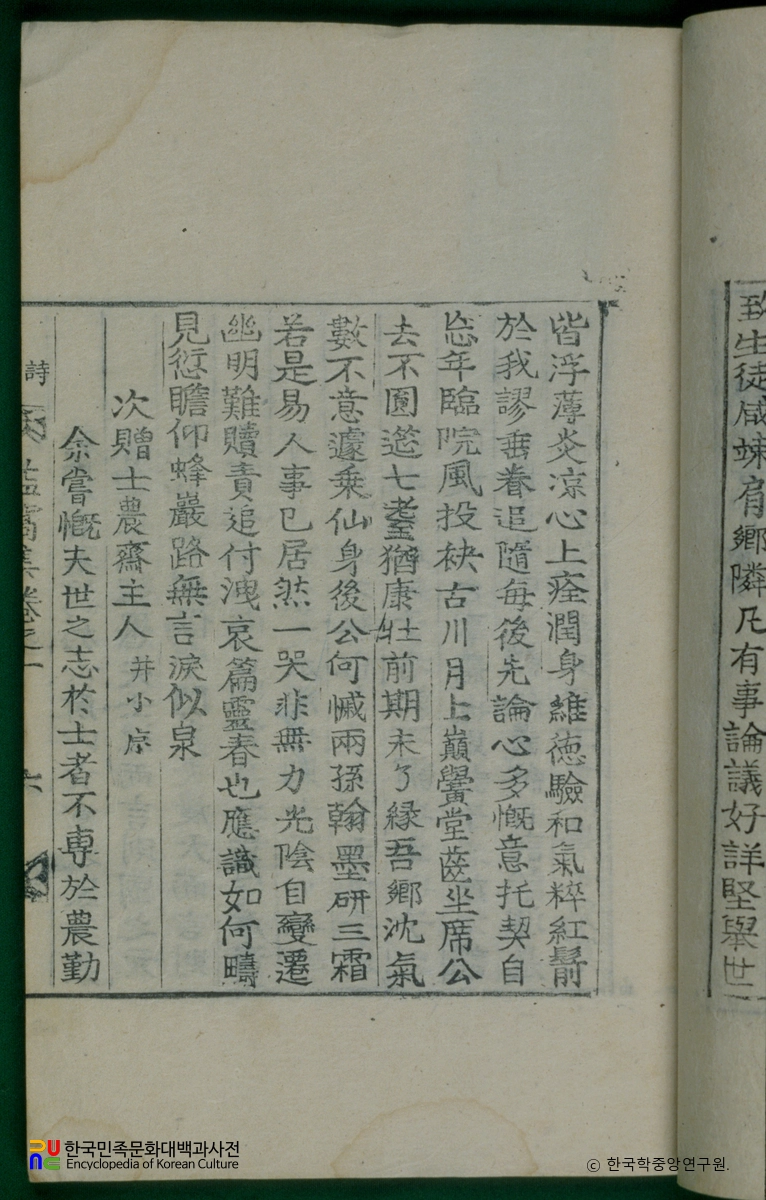 致生徒咸竦肩鄉隣凡有事論議好詳堅舉世
皆浮薄炎凉心上痊潤身維德驗和氣粹紅髯
於我謬垂眷追隨每後先論心多慨意托契自
忘年臨院風投袂古川月上巔黌堂齒坐席公
去不圓筵七耋猶康壯前期未了緣吾鄉沈氣
數不意遽乘仙身後公何慽兩孫翰墨硏三霜
若是易人事已居然一哭非無力光陰自變遷
幽明難贖責追付洩哀篇靈春也應識如何疇
見愆瞻仰蜂巖路無言淚似泉
次贈士農齋主人 并小序
余嘗慨夫世之志於士者不專於農勤
詩
集卷之一
六
한국민족문화대백과사전
Encyclopedia of Korean Culture
© 한국학중앙연구원.